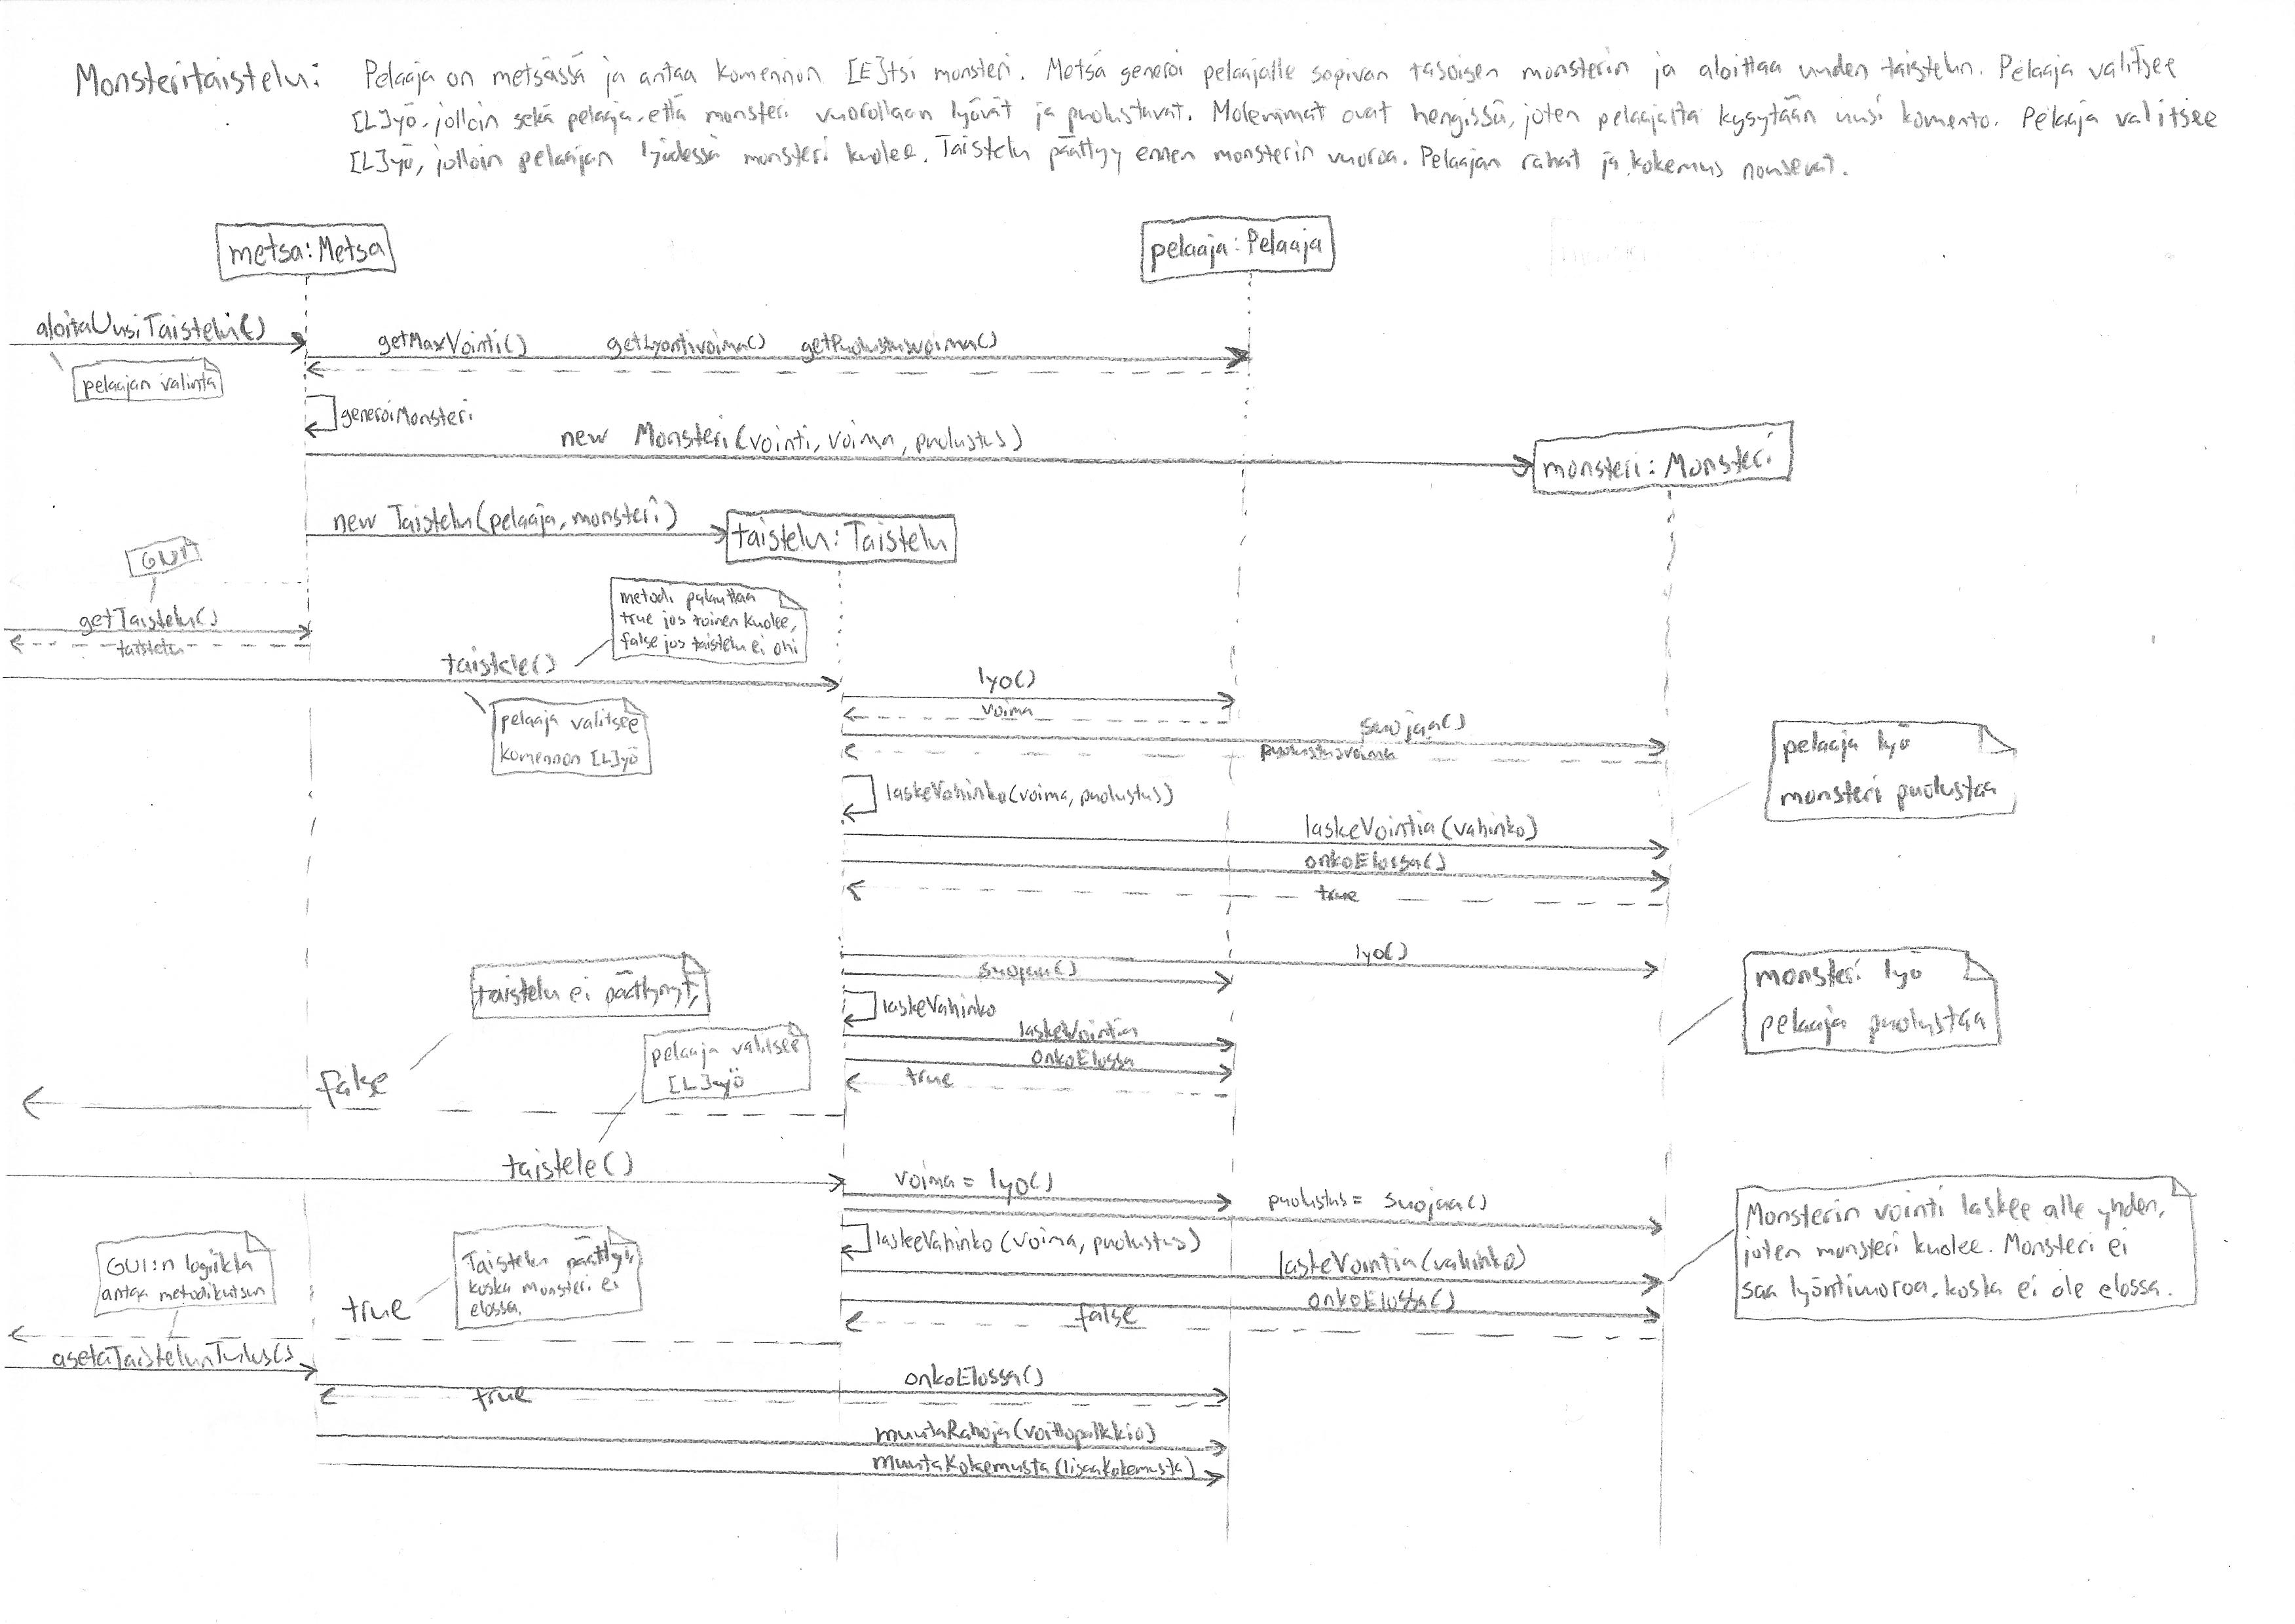 Monsteritaistelu: Pelaaja on metsässä ja antaa komennon [E]tsi monsteri. Metsä generoi pelaajalle sopivan tasoisen monsterin ja aloittaa uuden taistelun. Pelaaja valitsee
[L]yö, jolloin sekä pelaaja, että monsteri vuorollaan lyövät ja puolustavat. Molemmat ovat hengissä, joten pelaajalta kysytään uusi komento. Pelaaja valitsee
[L]yö, jolloin pelaajan lyödessä monsteri kuolee. Taistelu päättyy ennen monsterin vuoroa. Pelaajan rahat ja kokemus nousevat.
metsa:Metsa
pelaaja:Pelaaja
aloitaUusiTaistelu()
getMaxVointi() getLyontivoima() getPuolustusvoima()
pelaajan valinta
generoiMonsteri
new Monsteri(vointi, voima, puolustus)
monsteri:Monsteri
new Taistelu(pelaaja, monsteri)
taistelu:Taistelu
GUI
metodi palauttaa
true jos toinen kuolee,
false jos taistelu ei ohi
getTaistelu()
taistelu
taistele()
lyo()
voima
pelaaja valitsee
komennon [L]yö
suojaa()
puolustusvoima
pelaaja lyö
monsteri puolustaa
laskeVahinko(voima, puolustus)
laskeVointia(vahinko)
onkoElossa()
true
lyo()
suojaa()
monsteri lyö
pelaaja puolustaa
taistelu ei päättynyt,
laskeVahinko
laskeVointia
onkoElossa
true
pelaaja valitsee
[L]yö
false
taistele()
voima = lyo()
puolustus = suojaa()
Monsterin vointi laskee alle yhden,
joten monsteri kuolee. Monsteri ei
saa lyöntivuoroa, koska ei ole elossa.
laskeVahinko(voima, puolustus)
laskeVointia(vahinko)
onkoElossa()
false
GUI:n logiikka
antaa metodikutsun
Taistelu päättyi,
koska monsteri ei
elossa.
true
asetaTaistelunTulos()
onkoElossa()
true
muutaRahoja(voittopalkkio)
muutaKokemusta(lisaaKokemusta)